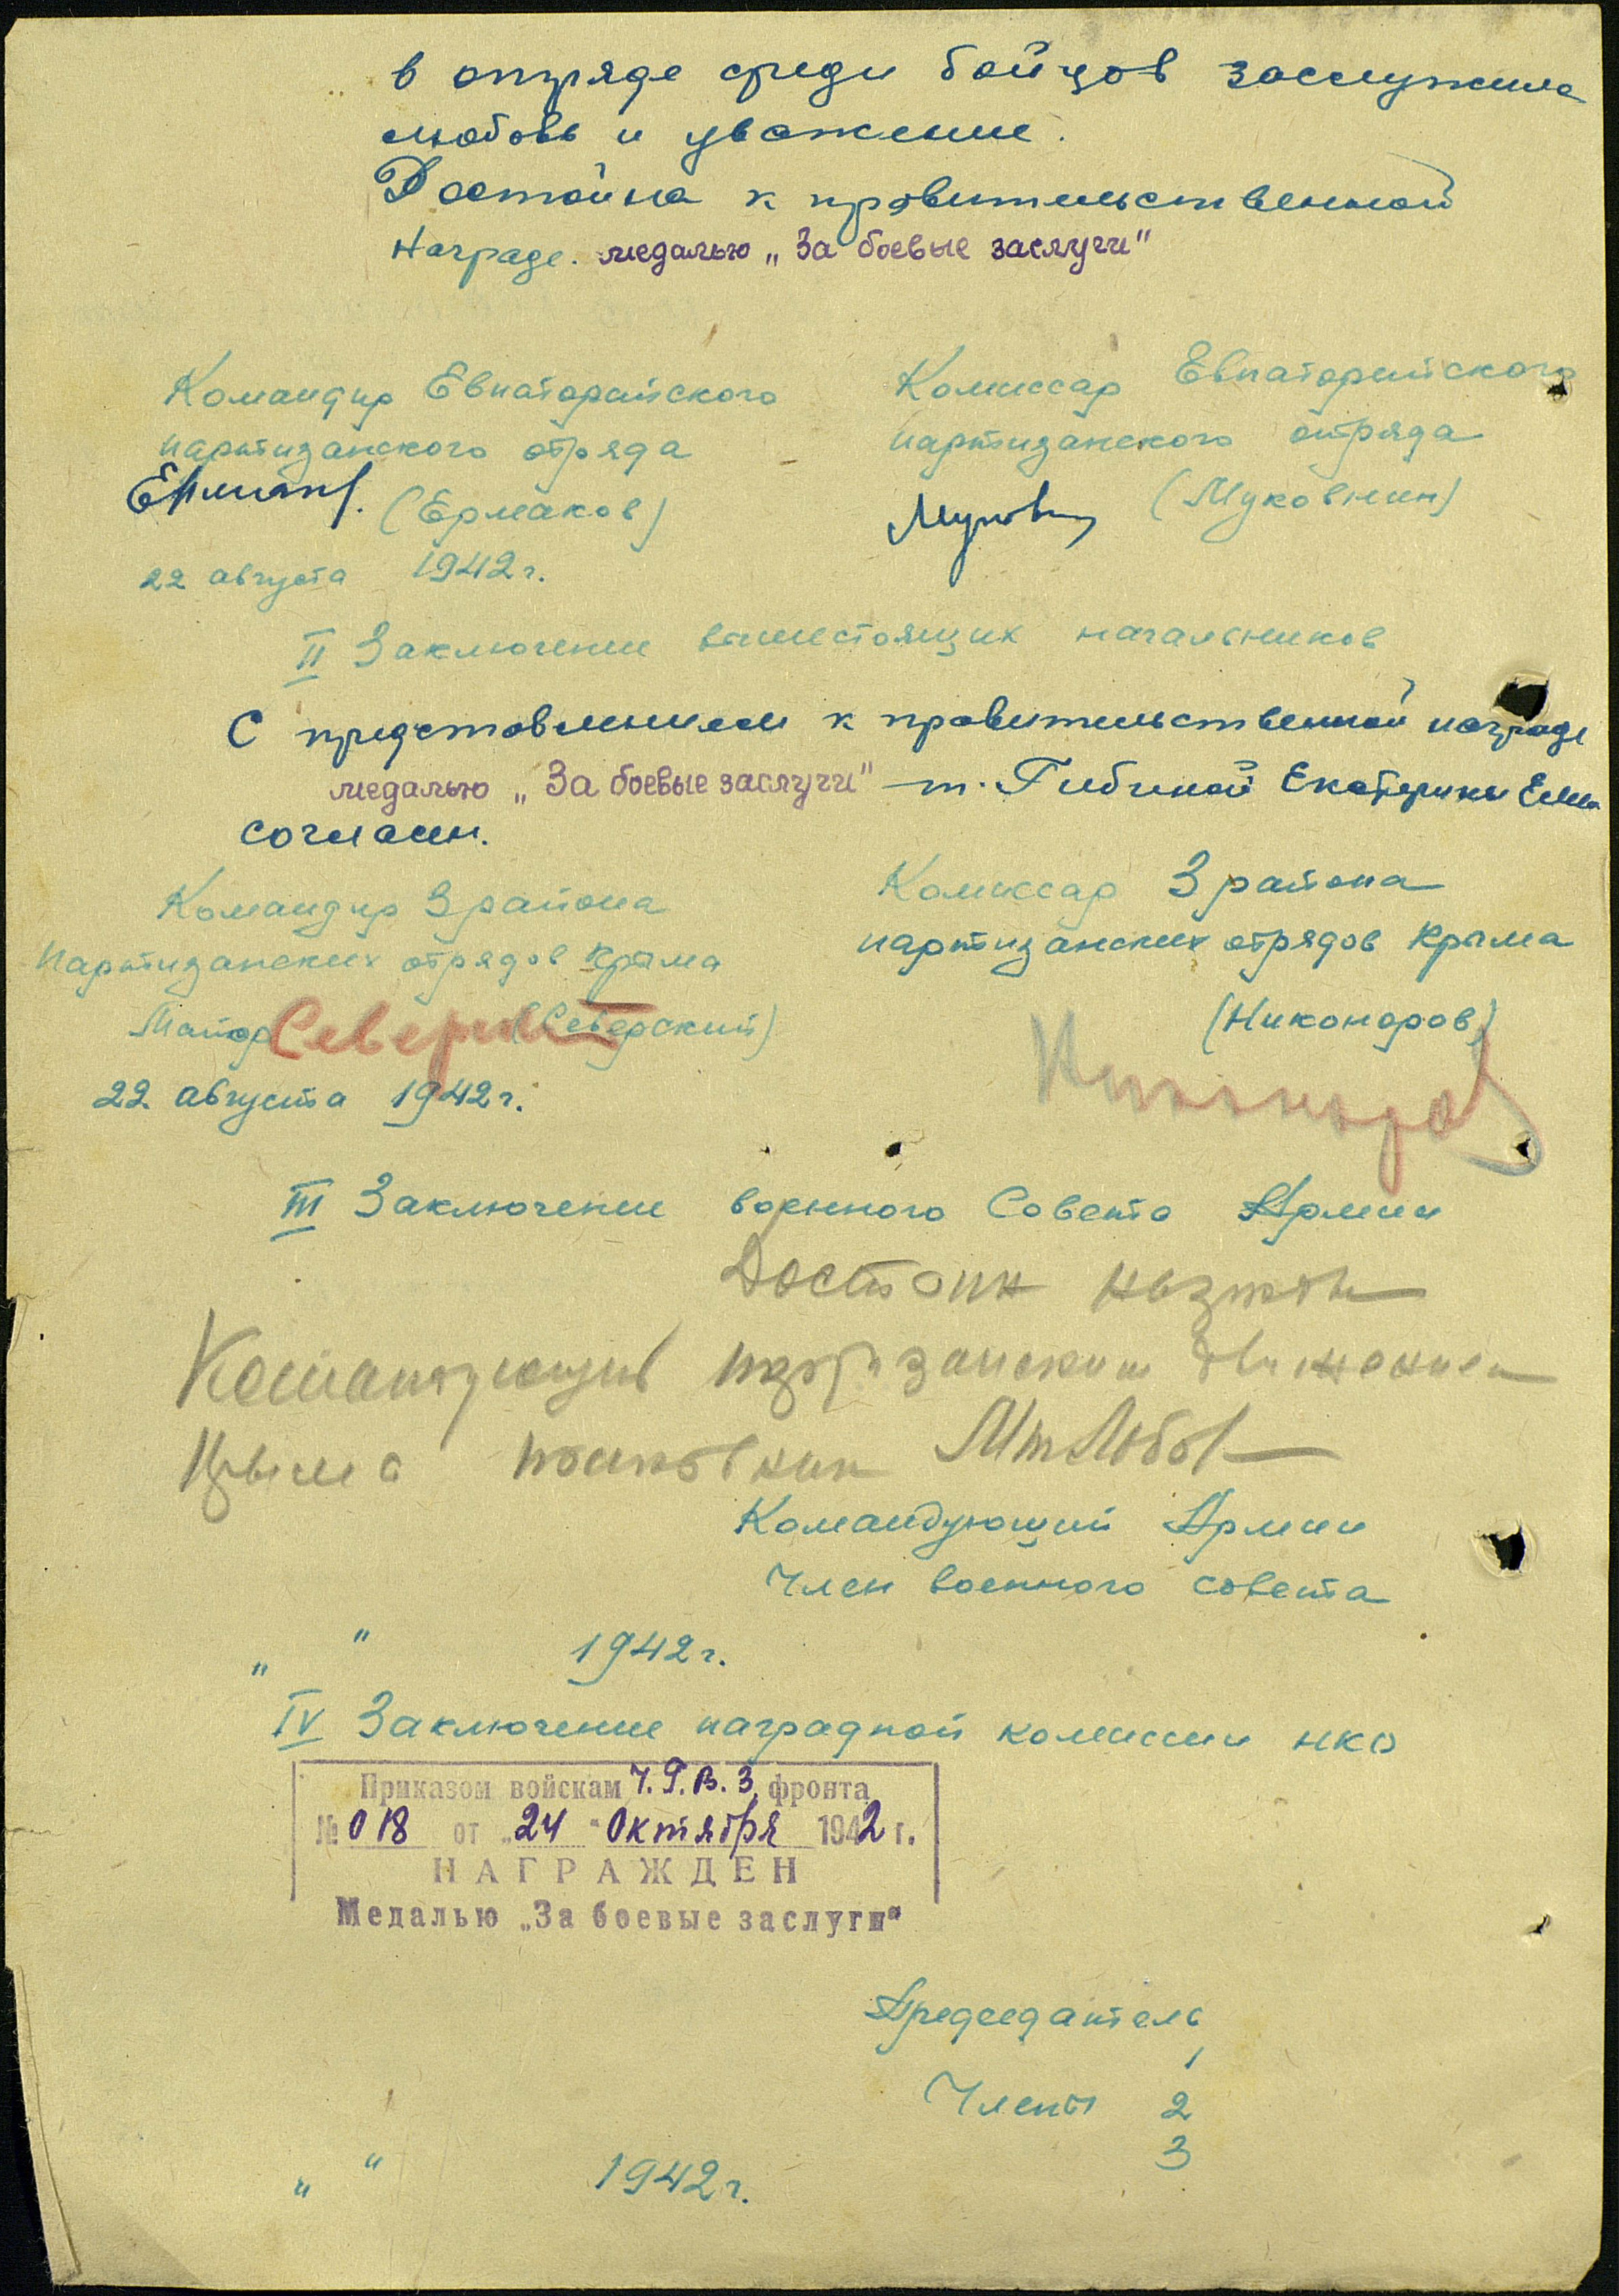 в отряде среди бойцов заслужила
любовь и уважение.
Достойна к правительственной
награде. медалью „За боевые заслуги"
Командир Евпаторийского
партизанского отряда
(Ермаков)
22 августа 1942 г.
Комиссар Евпаторийского
партизанского отряда
(Муковнин)
II Заключение вышестоящих начальников
С представлением к правительственной награде
медалью „За боевые заслуги" – т. Гибиной Екатерины
согласен.
Командир 3 района
партизанских отрядов Крыма
Майор Северский (Северский)
22 августа 1942 г.
Комиссар 3 района
партизанских отрядов Крыма
(Никоноров)
Никаноров
III Заключение военного Совета Армии
Достоин
Командующий партизанским движением
Крыма полковник М Лобов
Командующий Армии
Член военного совета
„ " 1942 г.
IV Заключение наградной комиссии НКО
Приказом войскам Ч.Г.В.З. фронта
№ 018 от „24" Октября 1942 г.
НАГРАЖДЕН
Медалью „За боевые заслуги"
Председатель
1
Члены 2
3
„ " 1942 г.